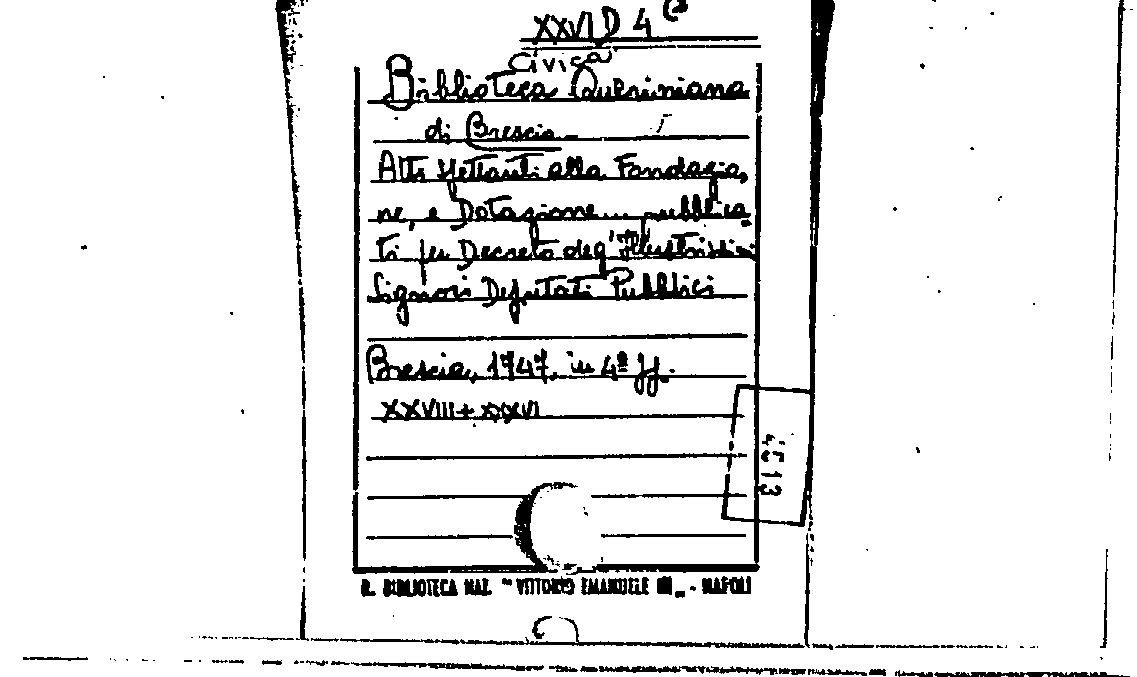 XXVI D 4
Civica
Biblioteca Queriniana
di Brescia
Atti spettanti alla Fondazio,
ne, e Dotazione... pubblica
ti per Decreto degl'Illustrissimi
Signori Deputati Pubblici
Brescia, 1747. in 4º ff.
XXVIII + XXXVI
R. BIBLIOTECA NAZ. "VITTORIO EMANUELE III„ - NAPOLI